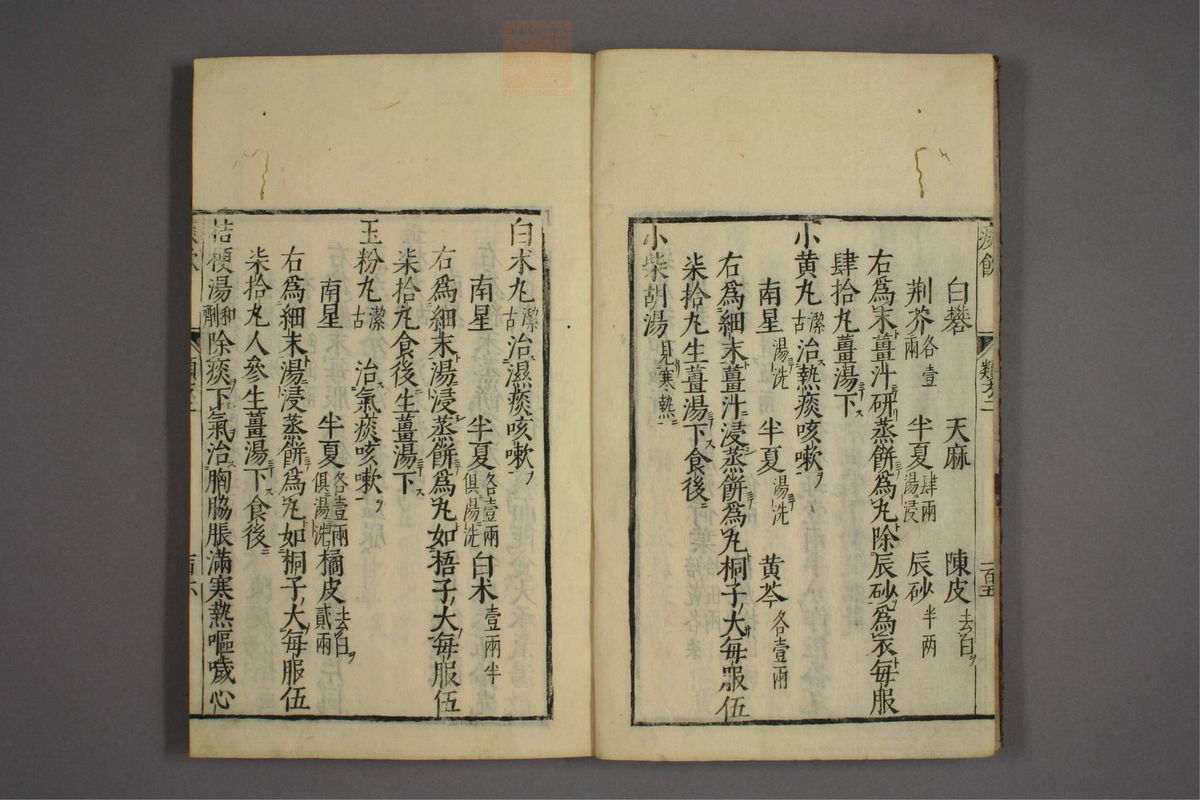 痰飮
類卷二
一百五
白礬 天麻 陳皮去白ヲ
荆芥各壹兩 半夏肆兩湯浸 辰砂半两
右爲末薑汁研蒸餅爲丸除辰砂爲衣毎服
肆拾丸薑湯下
小黄丸潔古治熱痰咳嗽
南星湯洗 半夏湯洗 黄芩各壹兩
右爲細末薑汁浸蒸餅爲丸桐子大毎服伍
柒拾丸生薑湯下食後
小柴胡湯見寒熱
白术丸潔古治濕痰咳嗽
南星 半夏各壹兩俱湯洗 白术壹兩半
右爲細末湯浸蒸餅爲丸如梧子大毎服伍
柒拾丸食後生薑湯下
玉粉丸潔古 治氣痰咳嗽
南星 半夏各壹兩俱湯洗 橘皮去白貳兩
右爲細末湯浸蒸餅爲丸如桐子大毎服伍
柒拾丸人參生薑湯下食後
桔梗湯和劑除痰下氣治胸脇脹滿寒熱嘔噦心